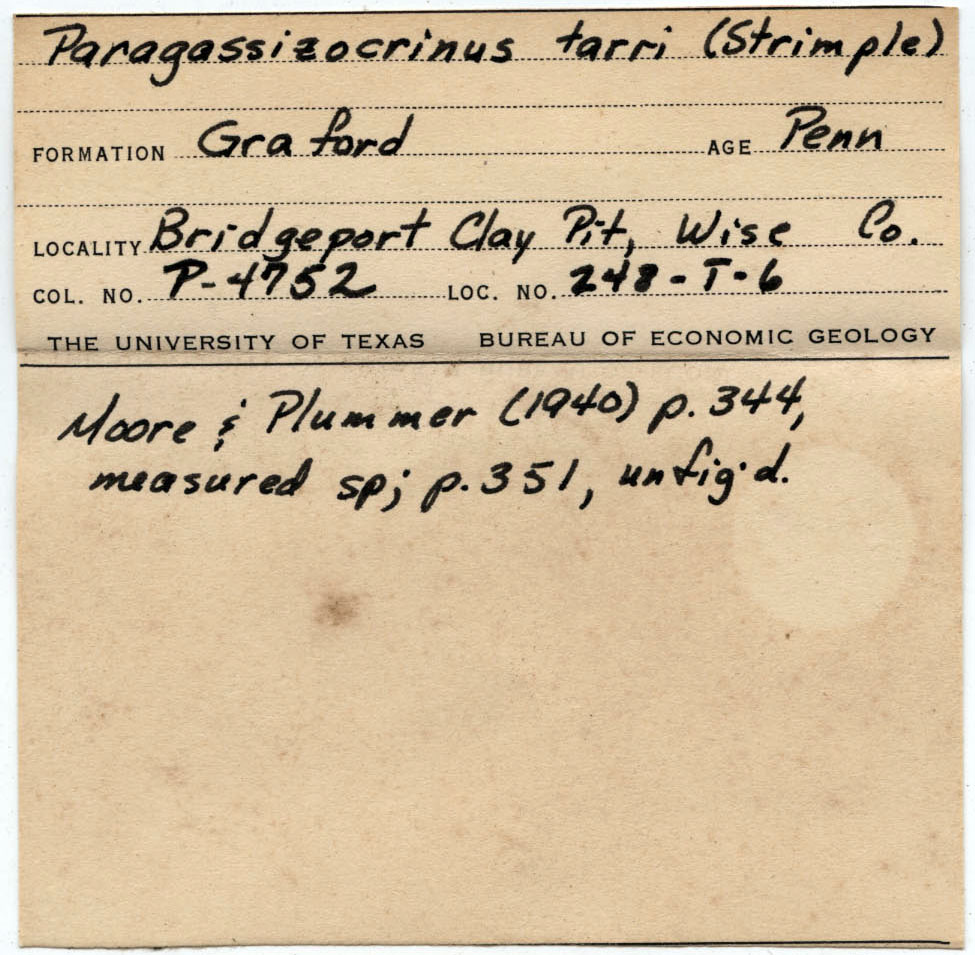 Paragassizocrinus tarri (Strimple)
FORMATION Graford AGE Penn
LOCALITY Bridgeport Clay Pit, Wise Co.
COL. NO. P-4752 LOC. NO. 248-T-6
THE UNIVERSITY OF TEXAS BUREAU OF ECONOMIC GEOLOGY
Moore & Plummer (1940) p. 344,
measured sp; p. 351, unfig'd.